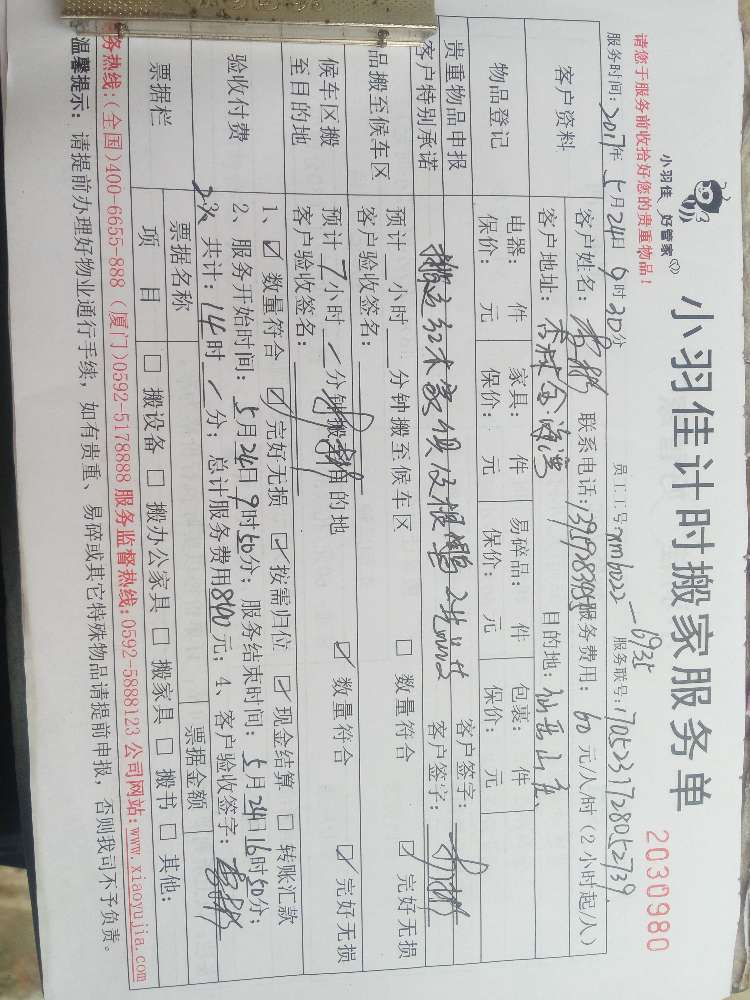 小羽佳 好管家
小羽佳计时搬家服务单
2030980
请您于服务前收拾好您的贵重物品！
员工工号：xmb022-6935
服务时间：2017年5月24日9时30分 服务联号：705231728052739
客户资料
客户姓名： 联系电话：13959783955服务费用：60元/人/时（2小时起/人）
客户地址： 目的地：仙岳山庄
物品登记
电器： 件 家具： 件 易碎品： 件 包裹： 件
保价： 元 保价： 元 保价： 元 保价： 元
贵重物品申报 客户签字：
客户特别承诺 客户签字：
品搬至候车区
预计 小时 分钟搬至候车区 ☐ 数量符合 ☑ 完好无损
客户验收签名：
候车区搬至目的地
预计7小时 分钟搬至目的地 ☑ 数量符合 ☑ 完好无损
客户验收签名：
验收付费
1、☑ 数量符合 ☑ 完好无损 ☑ 按需归位 ☑ 现金结算 ☐ 转账汇款
2、服务开始时间：5月24日9时50分；服务结束时间：5月24日16时50分；
共计：14时 分；总计服务费用840元；4、客户验收签字：
票据栏
票据名称 票据金额
项 目 ☐ 搬设备 ☐ 搬办公家具 ☐ 搬家具 ☐ 搬书 ☐ 其他：
务热线：（全国）400-6655-888（厦门）0592-5178888 服务监督热线：0592-5888123 公司网站：www.xiaoyujia.com
温馨提示：请提前办理好物业通行手续，如有贵重、易碎或其它特殊物品请提前申报，否则我司不予负责。